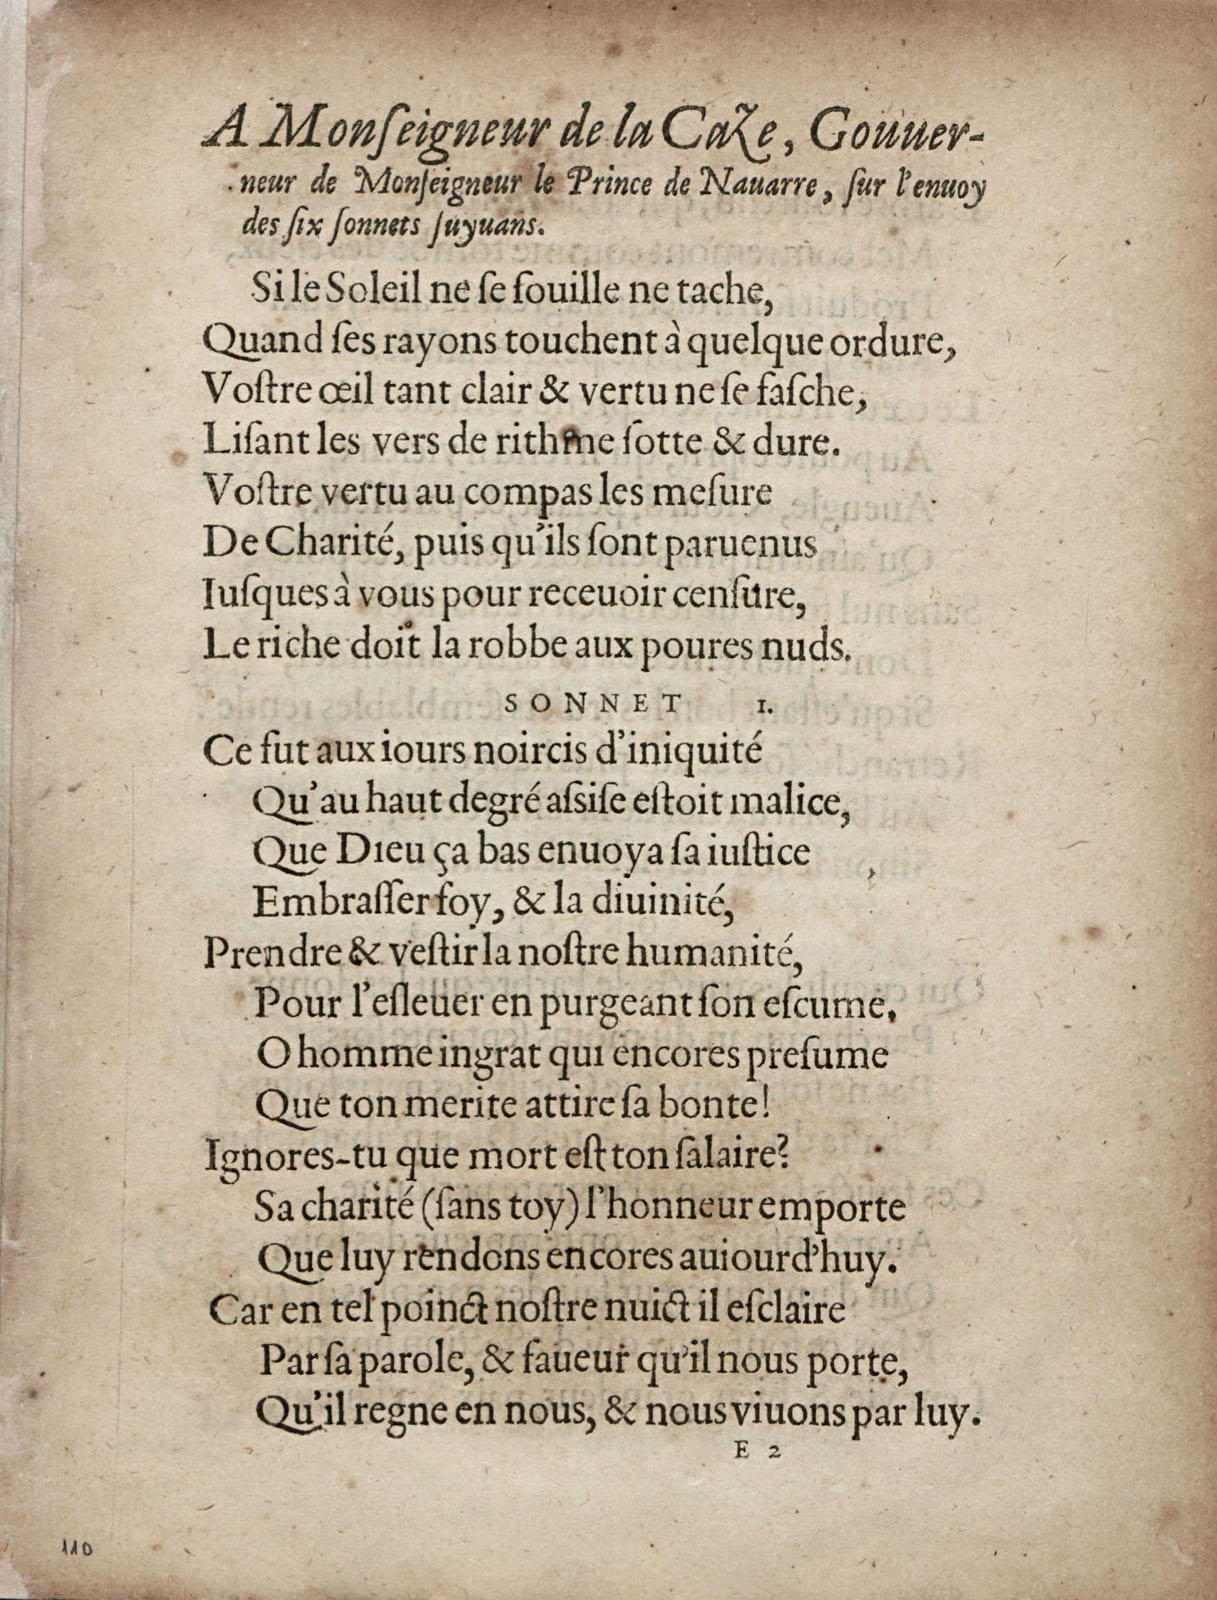 A Monſeigneur de la Caze, Gouuer-
neur de Monſeigneur le Prince de Nauarre, ſur l'enuoy
des ſix ſonnets ſuyuans.
Si le Soleil ne ſe ſouille ne tache,
Quand ſes rayons touchent à quelque ordure,
Voſtre œil tant clair & vertu ne ſe faſche,
Liſant les vers de rithme ſotte & dure.
Voſtre vertu au compas les meſure
De Charité, puis qu'ils ſont paruenus
Iuſques à vous pour receuoir cenſure,
Le riche doit la robbe aux poures nuds.
SONNET 1.
Ce fut aux iours noircis d'iniquité
Qu'au haut degré aſsiſe eſtoit malice,
Que Dieu ça bas enuoya ſa iuſtice
Embraſſer foy, & la diuinité,
Prendre & veſtir la noſtre humanité,
Pour l'eſleuer en purgeant ſon eſcume.
O homme ingrat qui encores preſume
Que ton merite attire ſa bonte!
Ignores-tu que mort eſt ton ſalaire?
Sa charité (ſans toy) l'honneur emporte
Que luy rendons encores auiourd'huy.
Car en tel poinct noſtre nuict il eſclaire
Par ſa parole, & faueur qu'il nous porte,
Qu'il regne en nous, & nous viuons par luy.
E 2
110